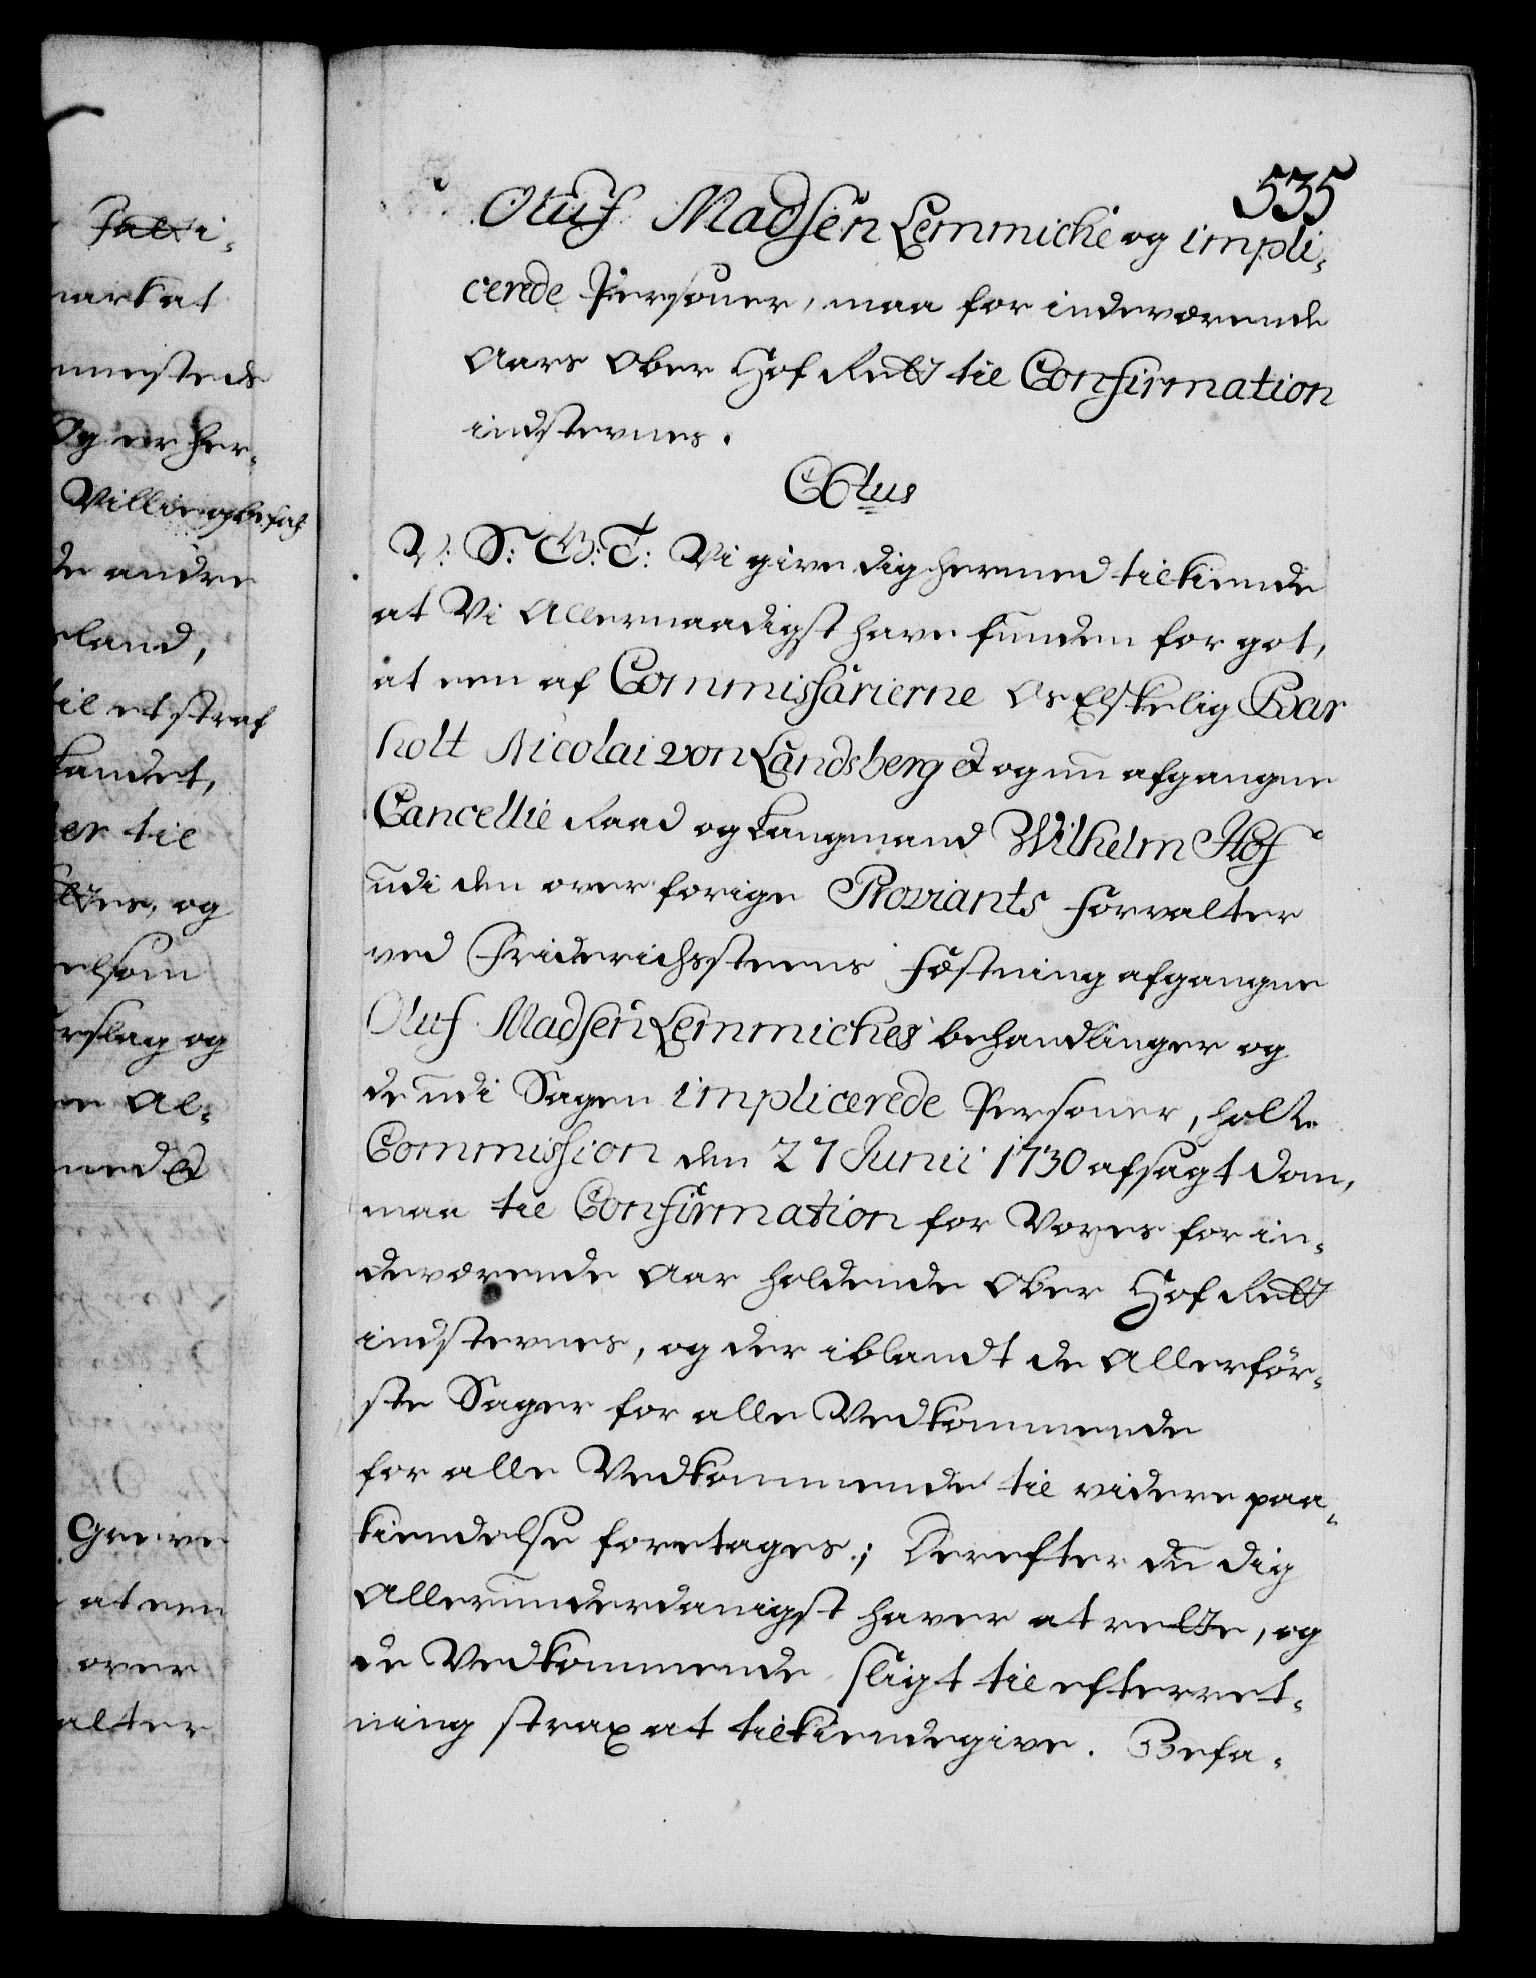 535
Oluf Madsen Lemmiche og impli-
cerede Personer, maa for indeværende
Aars Ober Hof Rett til Confirmation
indstevnes.
C6tus
V: S: G: T: Vi give dig hermed tilkiende
at Vi Allernaadigst have funden for got,
at een af Commissarierne Os Elskelig Bar
holt Nicolai von Landsberg et og nu afgangne
Cancellie Raad og Laugmand Wilhelm Hof
udi den over forige Proviants Forvalter
ved Friderichssteens Fæstning afgangne
Oluf Madsen Lemmiches behandlinger og
de udi Sagen implicerede Personer, holte
Commission den 27 Junii 1730 afsagt Dom,
maa til Confirmation for Vores for in-
deværende Aar holdende Ober Hof Rett
indstevnes, og der iblandt de Allerför-
ste Sager for alle Vedkommende
for alle Vedkommende til videre paa-
kiendelse foretages; Derefter du dig
Allerunderdanigst haver at rette, og
de Vedkommende sligt til efterret-
ning strax at tilkiendegive. Befa-
i-
markat
nesteds
Og er her-
Villie og befal
de andre
land,
til et straf
Landet,
er til
ttes, og
elsom
rslag og
e Al-
med
Greve
at een
over
alter